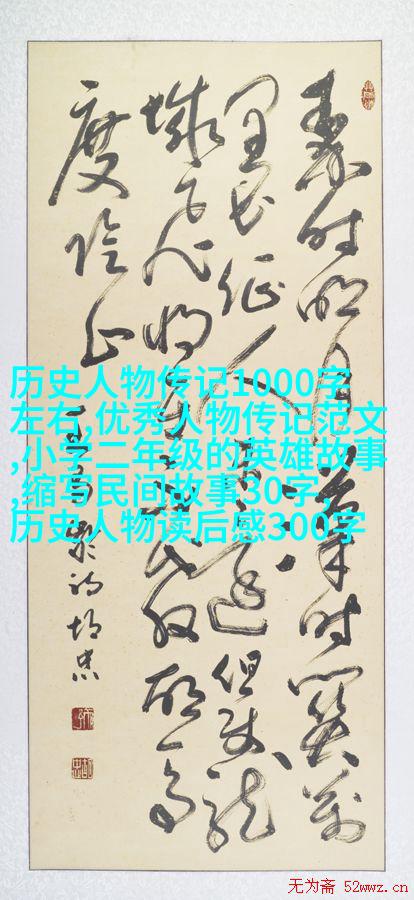 秦时明月汉时关万
里长征人未还但使龙
城飞将在不教胡马
度阴山 王昌龄诗
历史人物传记1000字
左右,优秀人物传记范文
,小学二年级的英雄故事
,缩写民间故事30字,
历史人物读后感300字
无为斋 52wwz.cn